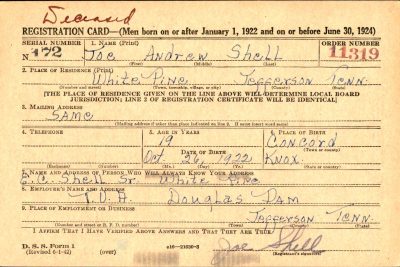 Deceased
REGISTRATION CARD—(Men born on or after January 1, 1922 and on or before June 30, 1924)
SERIAL NUMBER 1. NAME (Print) ORDER NUMBER
N 172 Joe Andrew Shell 11319
(First) (Middle) (Last)
2. PLACE OF RESIDENCE (Print)
White Pine Jefferson Tenn.
(Number and street) (Town, township, village, or city) (County) (State)
[THE PLACE OF RESIDENCE GIVEN ON THE LINE ABOVE WILL DETERMINE LOCAL BOARD
JURISDICTION; LINE 2 OF REGISTRATION CERTIFICATE WILL BE IDENTICAL]
3. MAILING ADDRESS
SAME
(Mailing address if other than place indicated on line 2. If same insert word same)
4. TELEPHONE 5. AGE IN YEARS 6. PLACE OF BIRTH
19 Concord
DATE OF BIRTH (Town or county)
Oct. 26, 1922 Knox.
(Exchange) (Number) (Mo.) (Day) (Yr.) (State or country)
7. NAME AND ADDRESS OF PERSON WHO WILL ALWAYS KNOW YOUR ADDRESS
C. Shell Sr. White Pine
8. EMPLOYER'S NAME AND ADDRESS
T.V.A. Douglas Dam
9. PLACE OF EMPLOYMENT OR BUSINESS
Jefferson Tenn.
(Number and street or R. F. D. number) (Town) (County) (State)
I AFFIRM THAT I HAVE VERIFIED ABOVE ANSWERS AND THAT THEY ARE TRUE.
D. S. S. Form 1
(Revised 6-1-42) (over) Joe Shell
(Registrant's signature)